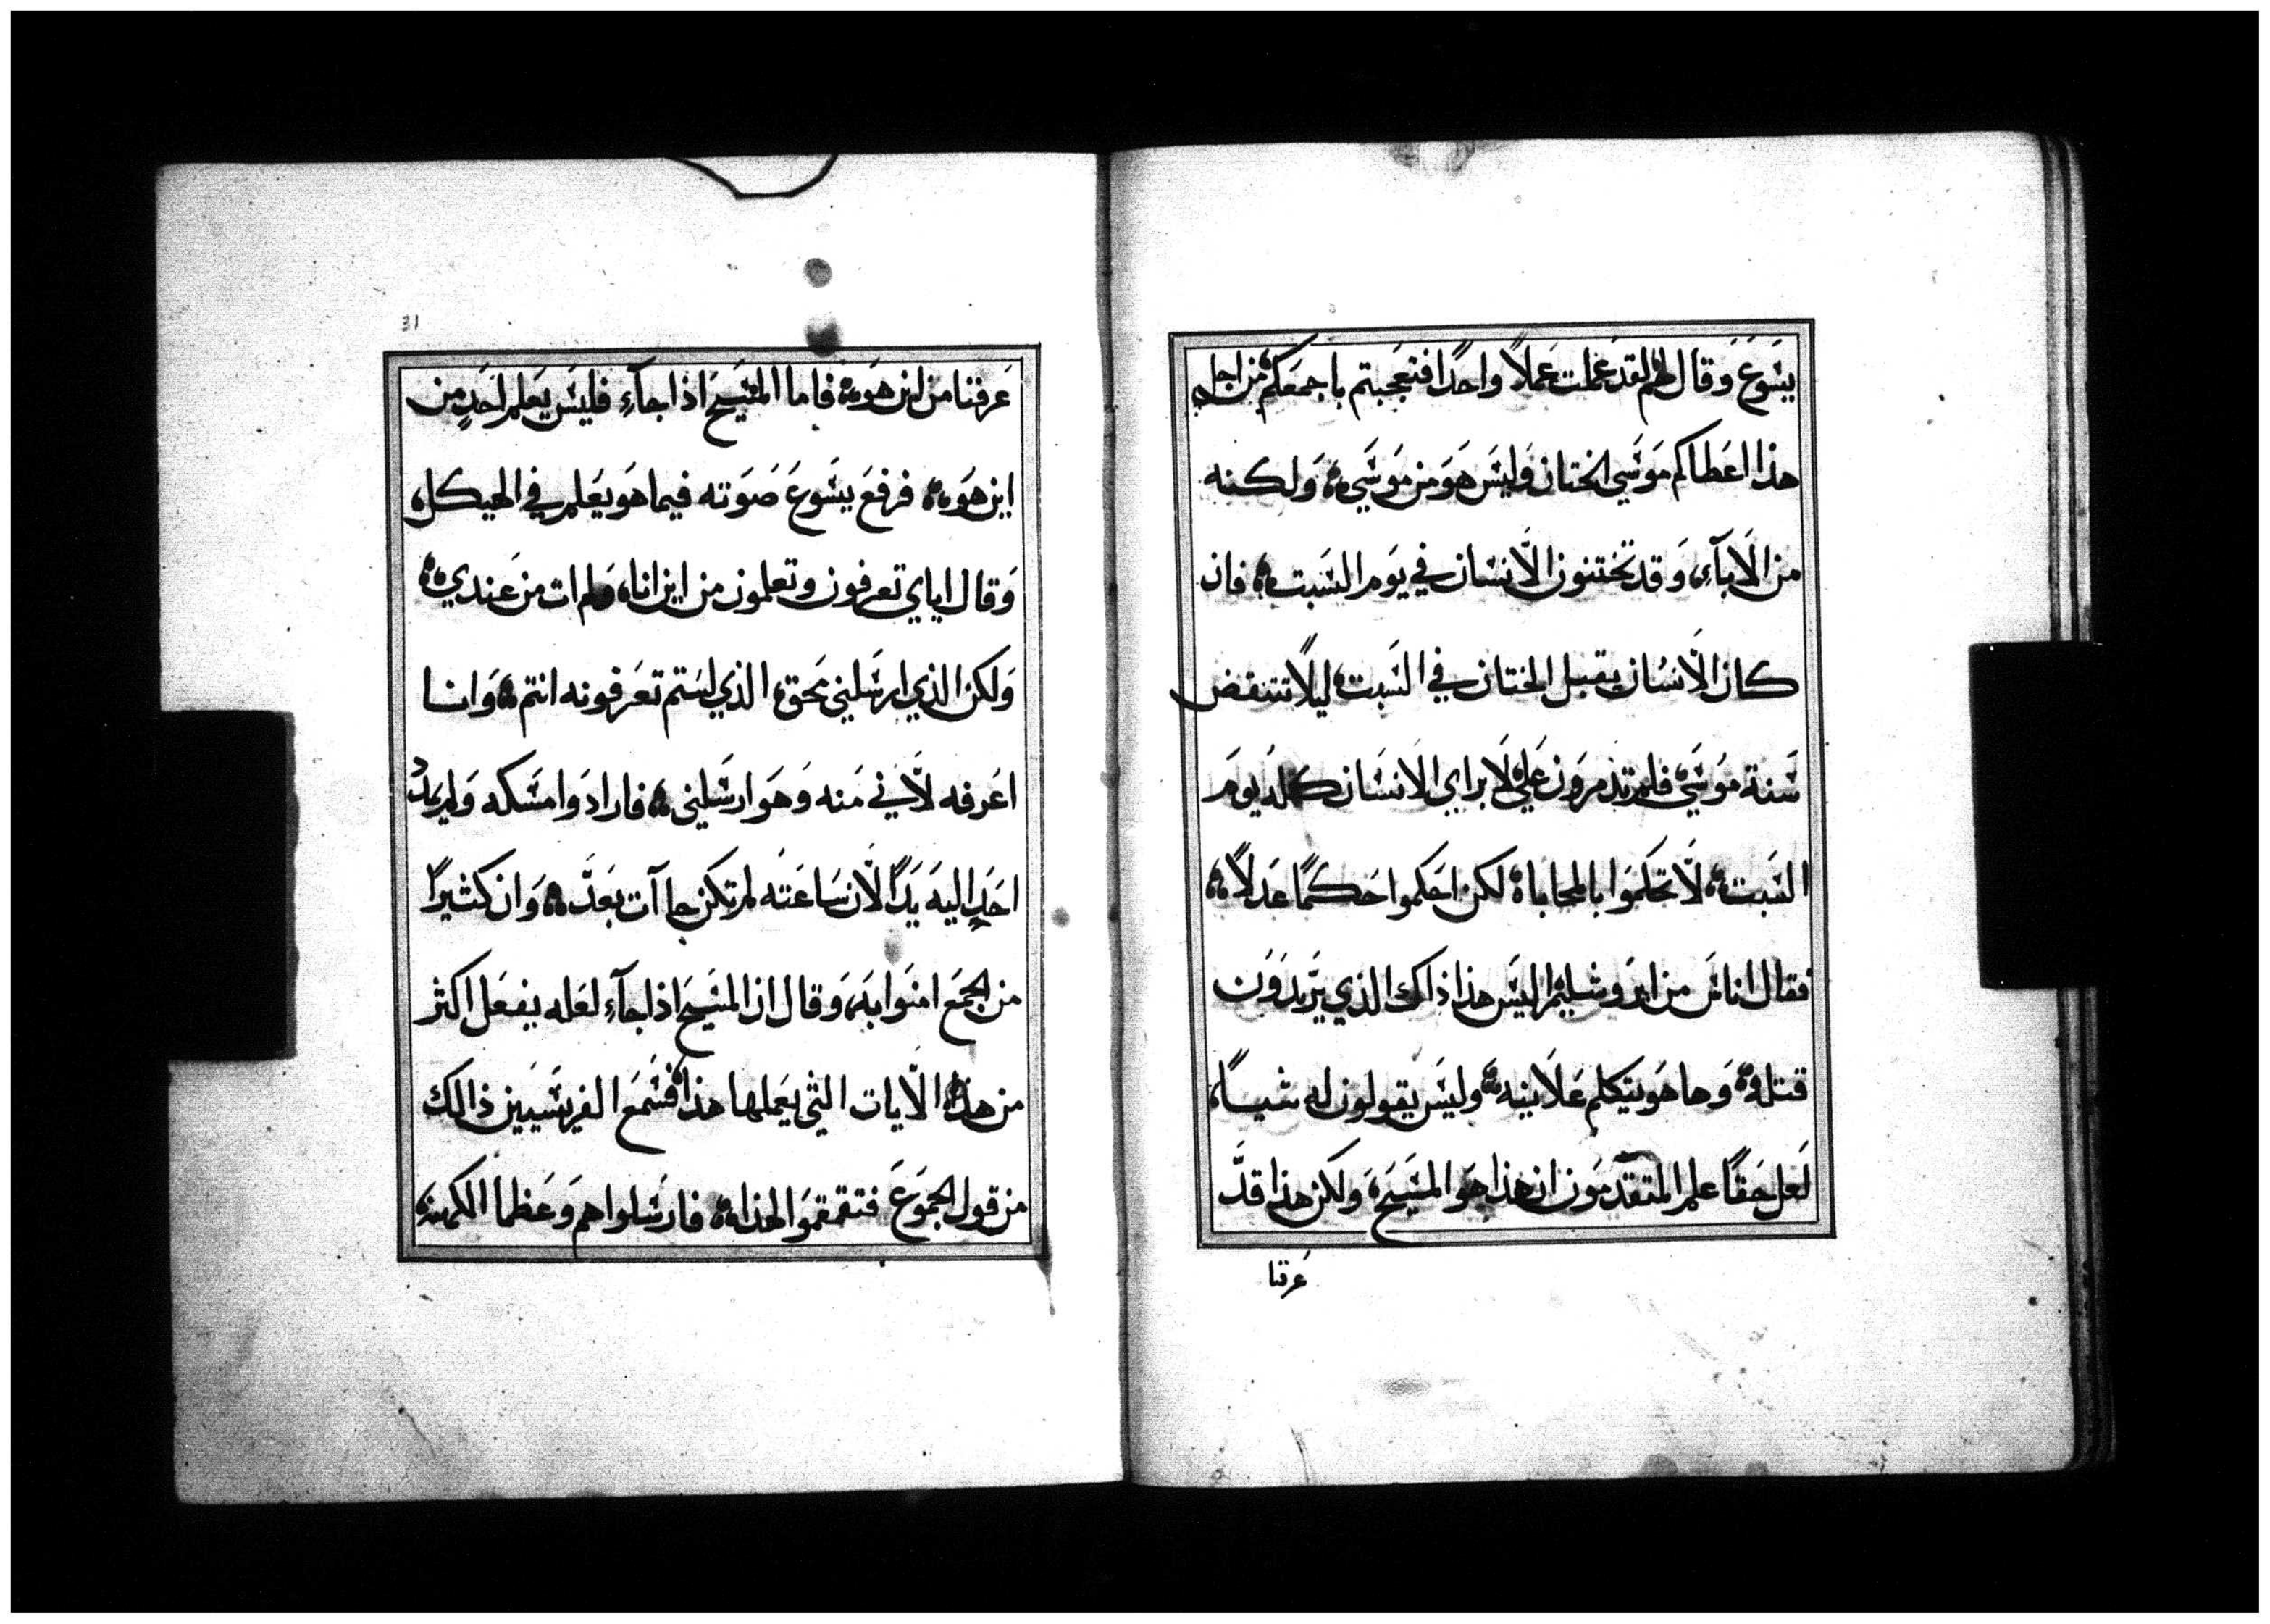 يسَوعَ وَقال لهم لقد عَملت عَملاً واحدًا فتعَجبتم باجمعَكم من اجل
هذا اعَطاكم مَوسَي الختان وَليسَ هوَ من مَوسَي وَلكنه
من الاَبآءِ وَقد تختنون الاَنسان في يوَم السَبت فان
كان الاَنسان يقبل الختان في السَبت ليلاً تنتقض
سَنة موُسَي فلم تتذمروَن علي لاَبراي الانسَان كله يوُمَ
السَبت لاَ تحَكموَا بالمحاباة لكن احَكموا حَكمًا عَدلاً
فقال اناسَ من ايروَشليم اليسَ هذا ذاك الذي يرَيدَوَن
قتله وَها هوَ يتكلم عَلاَنيه وليسَ يقولون له شياً
لَعل حَقاً علم المتقدموَن ان هذا هوَ المسَيحَ وَلكن هذا قدَّ
عَرفنا
31
عَرفنا من اين هوَ فاما المسَيحَ اذا جآءِ فليسَ يعَلم احَدٍ من
اين هوَ فرفعَ يسَوعَ صَوَته فيما هوَ يعَلم في الهيكل
وَقال اياي تعرفون وتعلمون من اين انا وَلم ات من عَندي
وَلكن الذي ارسَلني محَق الذي لسَتم تعَرفونه انتم وَانا
اعَرفه لاَني مَنه وَهوَ ارسَلني فارادوَا مسَكه وَلم يمدُ
احَدٍ اليهَ يَدًا لاَن سَاعَته لم تكن جاآت بعَدَّ وَان كثيرًا
من الجمَع امنوَا بهَ وَقال ان المسَيحَ اذا جآءِ لعَله يفعَل اكثر
من هذه الاَيات التي يعَملها هذا فسَمعَ الفريسَيين ذالك
من قول الجموَعَ فتقمقموَا لهذا فارسَلوا هم وَعَظما الكهنه